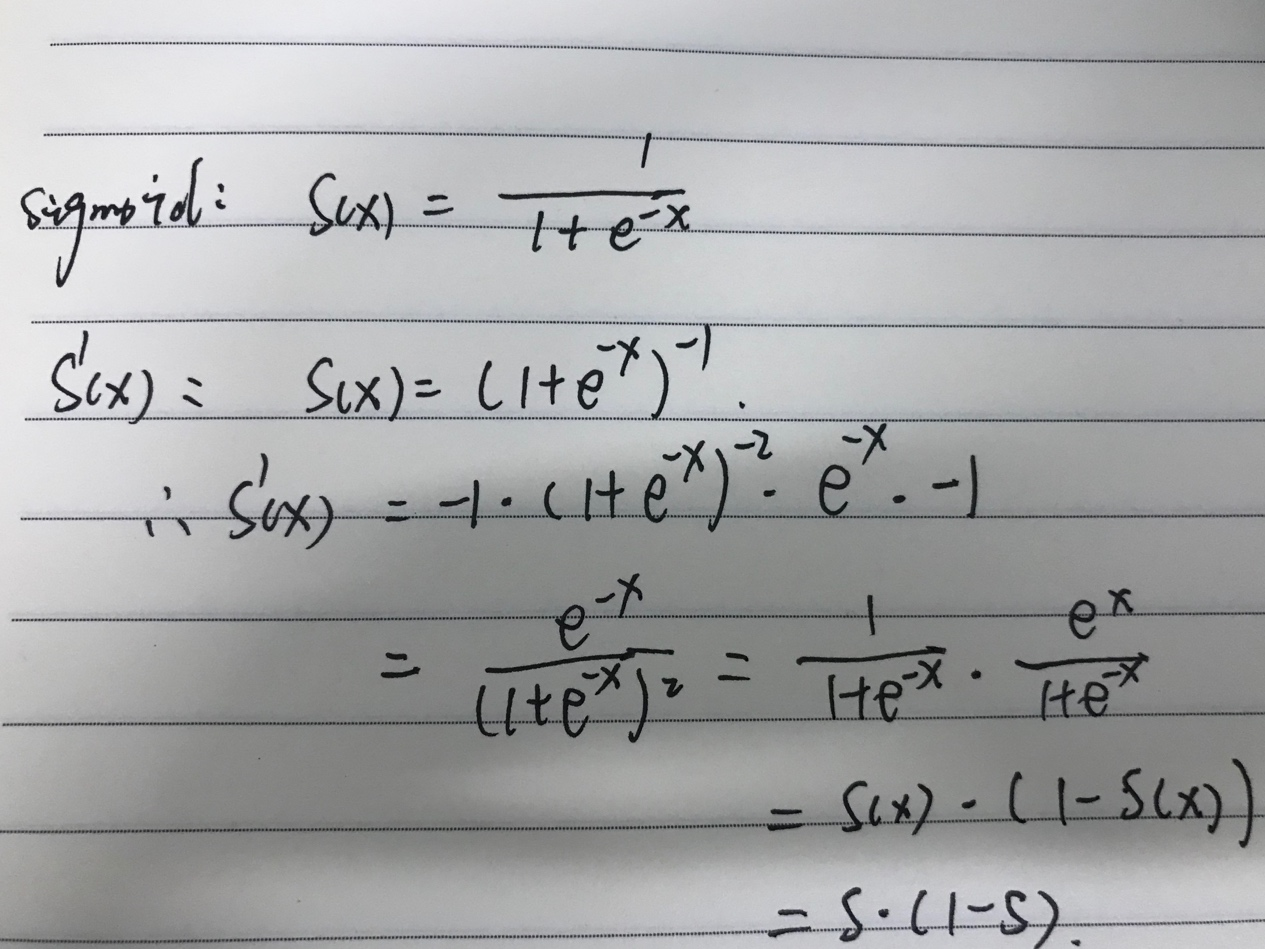 sigmoid: S(x) = 1 / (1 + e^{-x})
S'(x) = S(x) = (1+e^{-x})^{-1}.
∴ S'(x) = -1 · (1+e^{-x})^{-2} · e^{-x} · -1
= e^{-x} / (1+e^{-x})^2 = 1 / (1+e^{-x}) · e^x / (1+e^{-x})
= S(x) · (1 - S(x))
= S · (1-S).